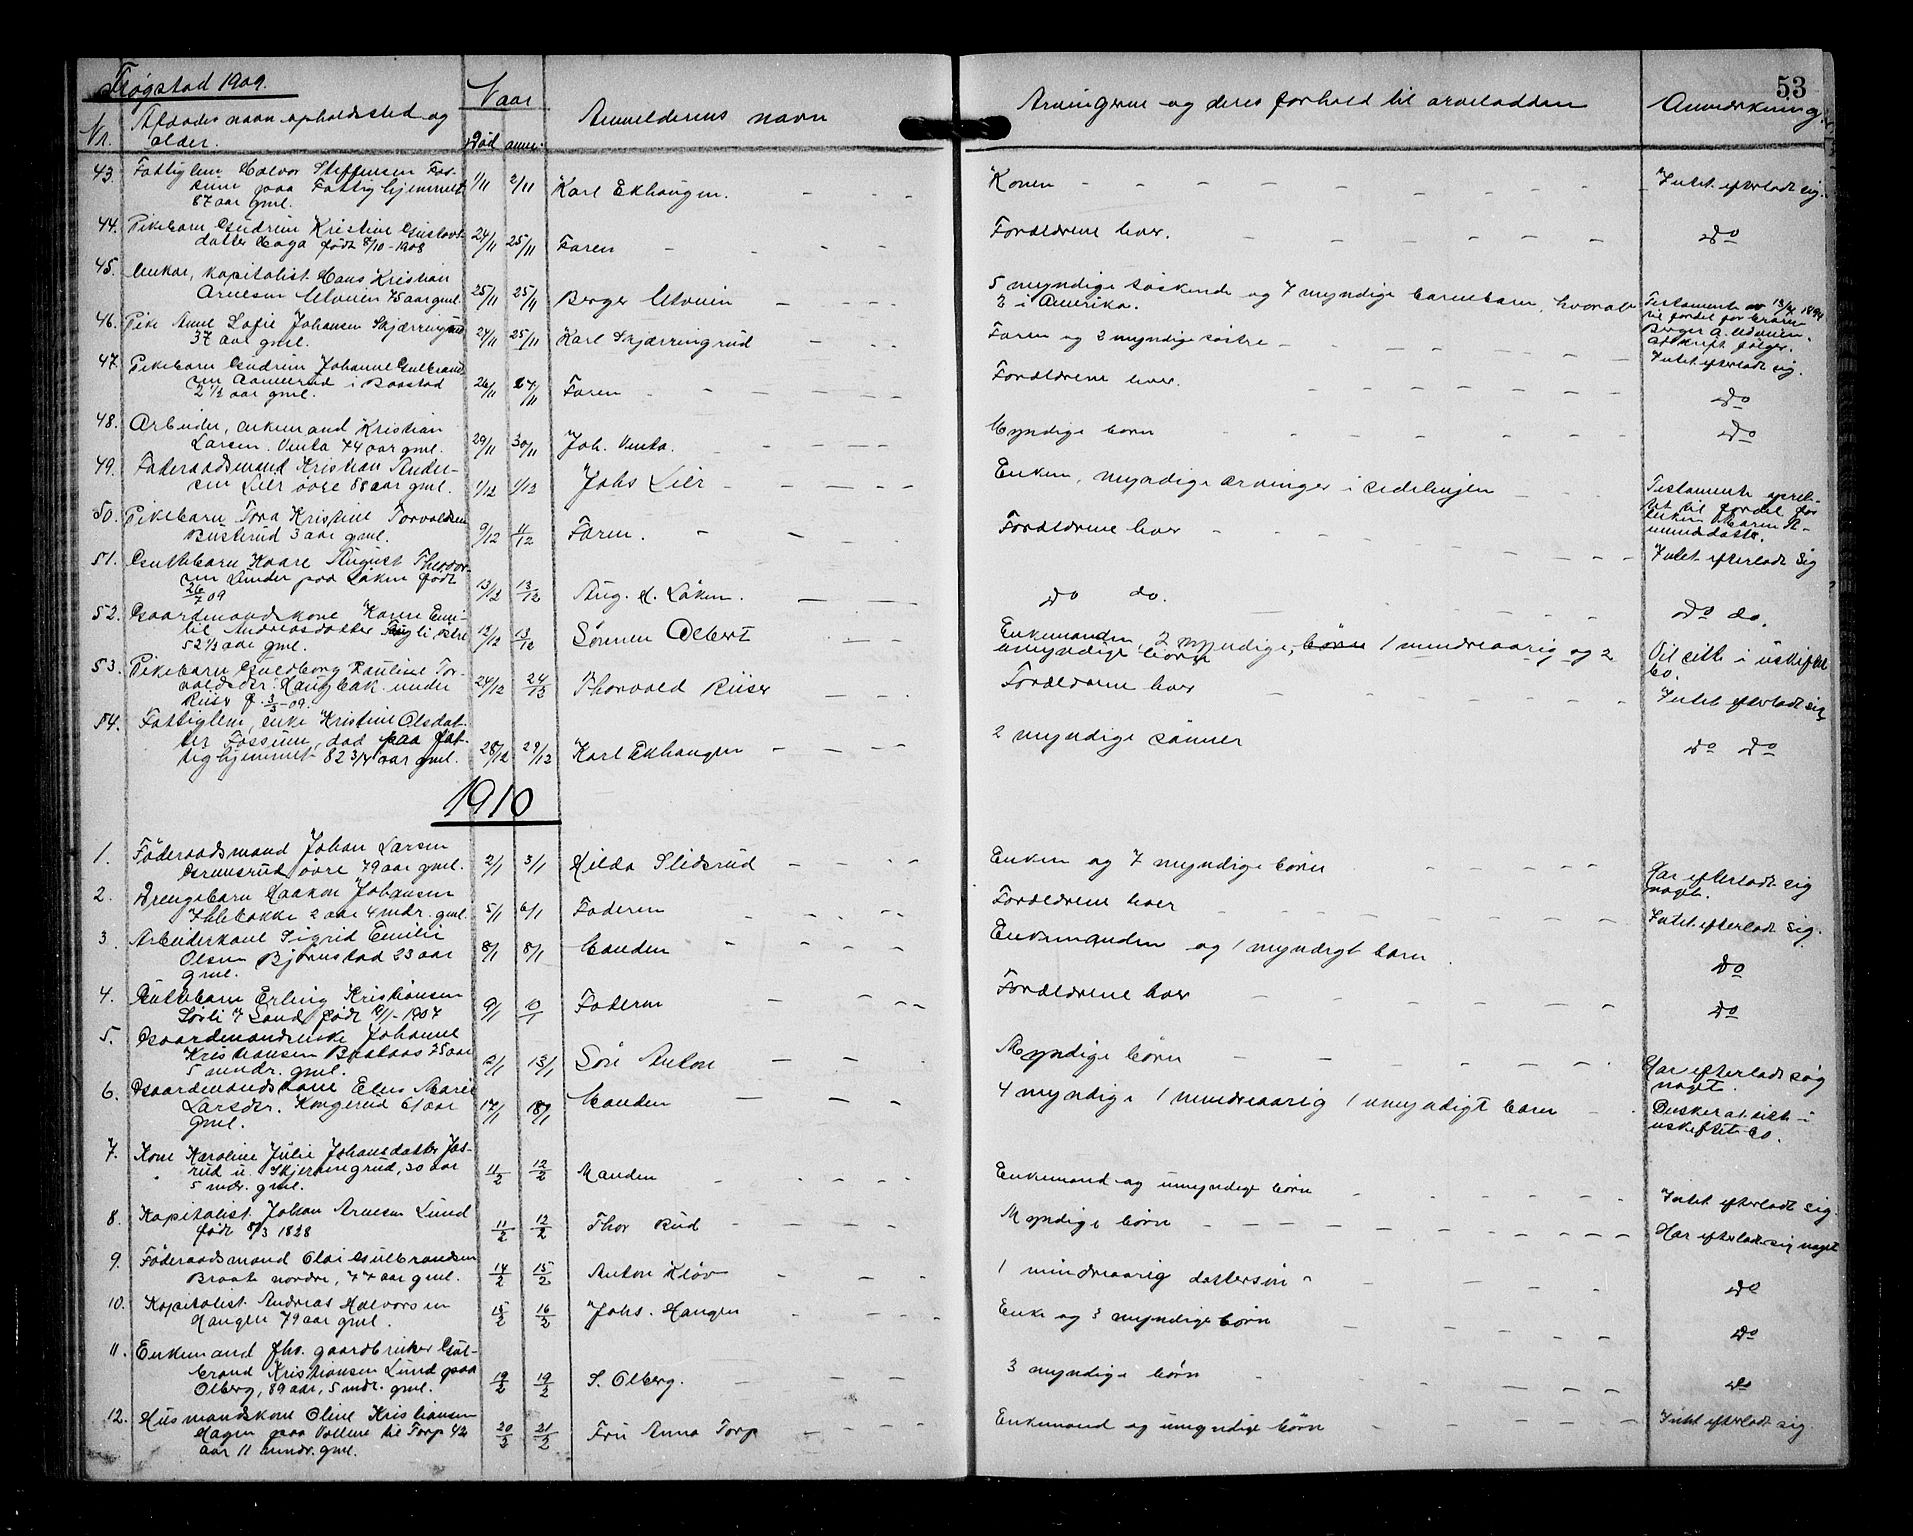 53
Trøgstad 1909.
Nr. Afdødes navn opholdssted og alder. Naar Død anm. Anmelderens navn Arvingerne og deres forhold til arveladden Anmerkning
43. Fattiglem Halvor Steffensen Fos-
sum paa Fattighjemmet 1/11 2/11 Karl Ekhaugen. Konen Intet efterladt sig.
87 aar gml.
44. Pikebarn Gudrun Kristine Gustavs-
datter Haga født 8/10-1908 24/11 25/11 Faren Forældrene lever. Do
45. Enkem., kapitalist Hans Kristian
Arnesen Mønien 75 aar gml. 25/11 25/11 Berger 5 myndige søskende og 7 myndige barnebarn, hvoraf
2 i Amerika. Testamente av 1894
til fordel for
Berger A.
Avskrift følger.
46. Pike Anne Sofie Johansen Skjærringrud
37 aar gml. 24/11 25/11 Karl Skjærringrud Faren og 2 myndige søstre Intet efterladt sig.
47. Pikebarn Gudrun Johanne Gulbrand-
sen i Baastad 26/11 27/11 Faren Forældrene lever. Do
2 1/2 aar gml.
48. Arbeider, enkemand Kristian
Larsen Venta 74 aar gml. 29/11 30/11 Joh. Venta. Myndige børn Do
49. Føderaadsmand Kristian Ander-
sen Lier øvre 88 aar gml. 1/12 1/12 Johs Lier Enken, myndige arvinger i sidelinjen Testamente opret-
tet til fordel for
enken Maren A-
mundsdatter.
50. Pikebarn Tora Kristine Torvaldsen
Busterud 3 aar gml. 9/12 11/12 Faren. Forældrene lever Intet efterladt sig
51. Guttebarn Kaare August Theodor-
sen Lunder paa Løken født
26/7 09 13/12 13/12 Aug. H. Løken. Do do. Do do.
52. Gaardmandskone Karen Emi-
lie Andreasdatter østre
52 1/2 aar gml. 12/12 13/12 Sønnen Albert Enkemanden, 2 myndige, børn 1 mindreaarig og 2
umyndige børn Vil sitte i uskiftet
bo.
53. Pikebarn Guldborg Pauline Tor-
valdsdr. Haugbak under
Riiser f. 3/3-09. 24/12 24/12 Thorvald Riiser Forældrene lever Intet efterladt sig
54. Fattiglem, enke Kristine Olsdat-
ter Fossum, død paa fat-
tighjemmet 82 3/4 aar gml. 28/12 29/12 Karl Ekhaugen 2 myndige sønner Do Do
1910
1. Føderaadsmand Johan Larsen
Grimsrud øvre 79 aar gml. 2/1 3/1 Hilda Slidsrud Enken og 7 myndige børn Har efterladt sig
noget.
2. Drengebarn Haakon Johansen
Ihlebakke 2 aar 4 mdr. gml. 5/1 6/1 Faderen Forældrene lever Intet efterladt sig.
3. Arbeiderkone Sigrid Emilie
Olsen Bjørnstad 23 aar
gml. 8/1 8/1 Manden Enkemanden og 1 myndigt barn Do
4. Guttebarn Erling Kristiansen
Sørli Sand født 1907 9/1 10/1 Faderen Forældrene lever Do
5. Gaardmandsenke Johanne
Kristiansen Braataas 75 aar
5 mndr. gml. 9/1 13/1 Søn Anton Myndige børn Har efterladt sig
noget.
6. Gaardmandskone Elise Marie
Larsdr. Kongerud 61 aar
gml. 17/1 18/1 Manden 4 myndige 1 mindreaarig 1 umyndigt barn Ønsker at sitte i
uskiftet bo.
7. Kone Karoline Julie Johansdatter Jos-
rud u. Skjerringrud, 30 aar
5 mdr. gml. 11/2 12/2 Manden Enkemand og umyndige børn Intet efterladt sig.
8. Kapitalist Johan Arnesen Lund
født 8/3 1828 11/2 12/2 Thor Rud Myndige børn Har efterladt sig noget
9. Føderaadsmand Olai Gulbrandsen
Braate nordre, 77 aar gml. 14/2 15/2 Anton Kløv 1 mindreaarig dattersøn Do
10. Kapitalist Andreas Halvorsen
Haugen 79 aar gml. 15/2 16/2 Johs. Haugen Enke og 3 myndige børn Do
11. Enkemand fhv. gaardbruker Gul-
brand Kristiansen Lund paa
Olberg, 89 aar, 5 mdr. gml. 19/2 19/2 S. Olberg. 3 myndige børn Do
12. Husmandskone Oline Kristiansen
Hagen paa Vollene til Torp 42
aar 11 mndr. gml. 20/2 21/2 Fru Anna Torp Enkemand og umyndige børn Intet efterladt sig.